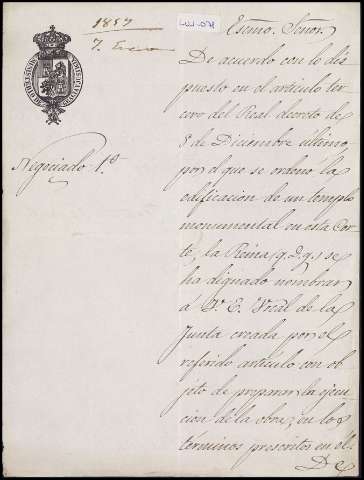 1857
7. Enero
Negociado 1.º
Escmo. Señor.
De acuerdo con lo dis
puesto en el articulo ter
cero del Real decreto de
5 de Diciembre último,
por el que se ordenó la
edificacion de un templo
monumental en esta Cor
te, la Reina (q. D. g.) se
ha dignado nombrar
á V. E. Vocal de la
Junta creada por el
referido artículo con ob
jeto de preparar la ejecu
cion de la obra, en los
términos prescritos en el.
De